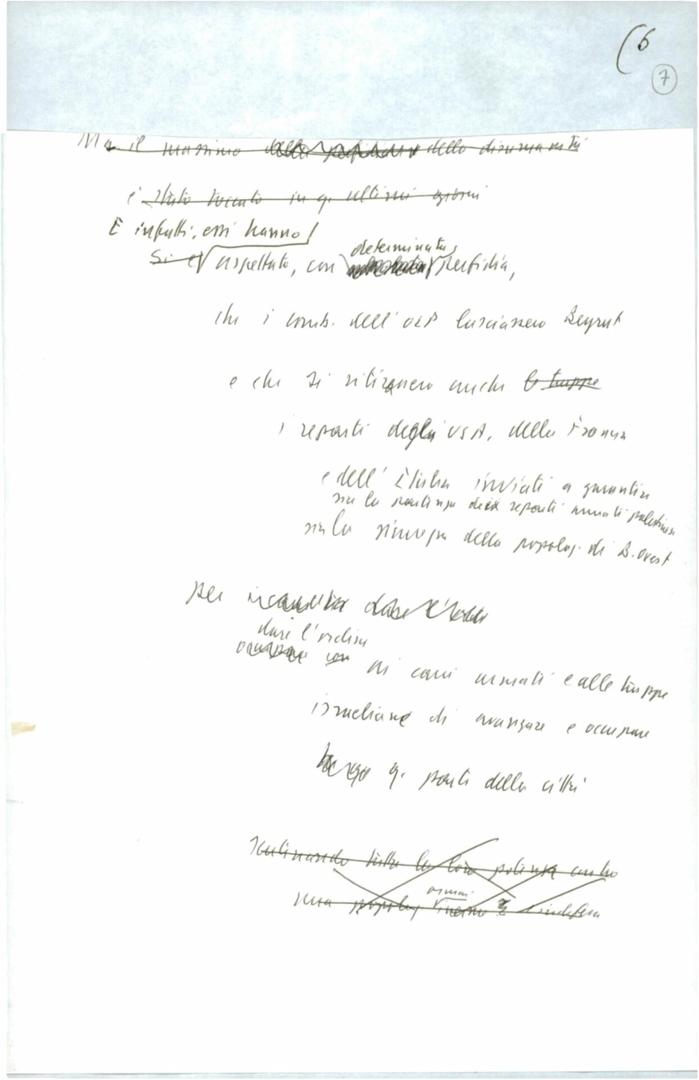 (6
7
Ma il massimo della dello disumanità
è stato toccato in q. ultimi giorni
E infatti, essi hanno
determinata
Si è aspettato, con perfidia,
che i comb. dell'OLP lasciassero Beyrut
e che si ritirassero anche le truppe
i reparti degli USA, della Francia
e dell'Italia inviati a garantire
sia la partenza dei reparti armati palestinesi
sia la sicurezza della popolaz. di B. ovest
Per dare l'ordine
dare l'ordine
occupare con ai carri armati e alle truppe
israeliane di avanzare e occupare
q. parti della città
Scatenando tutta la loro potenza contro
ormai
una popolaz. inerme e indifesa